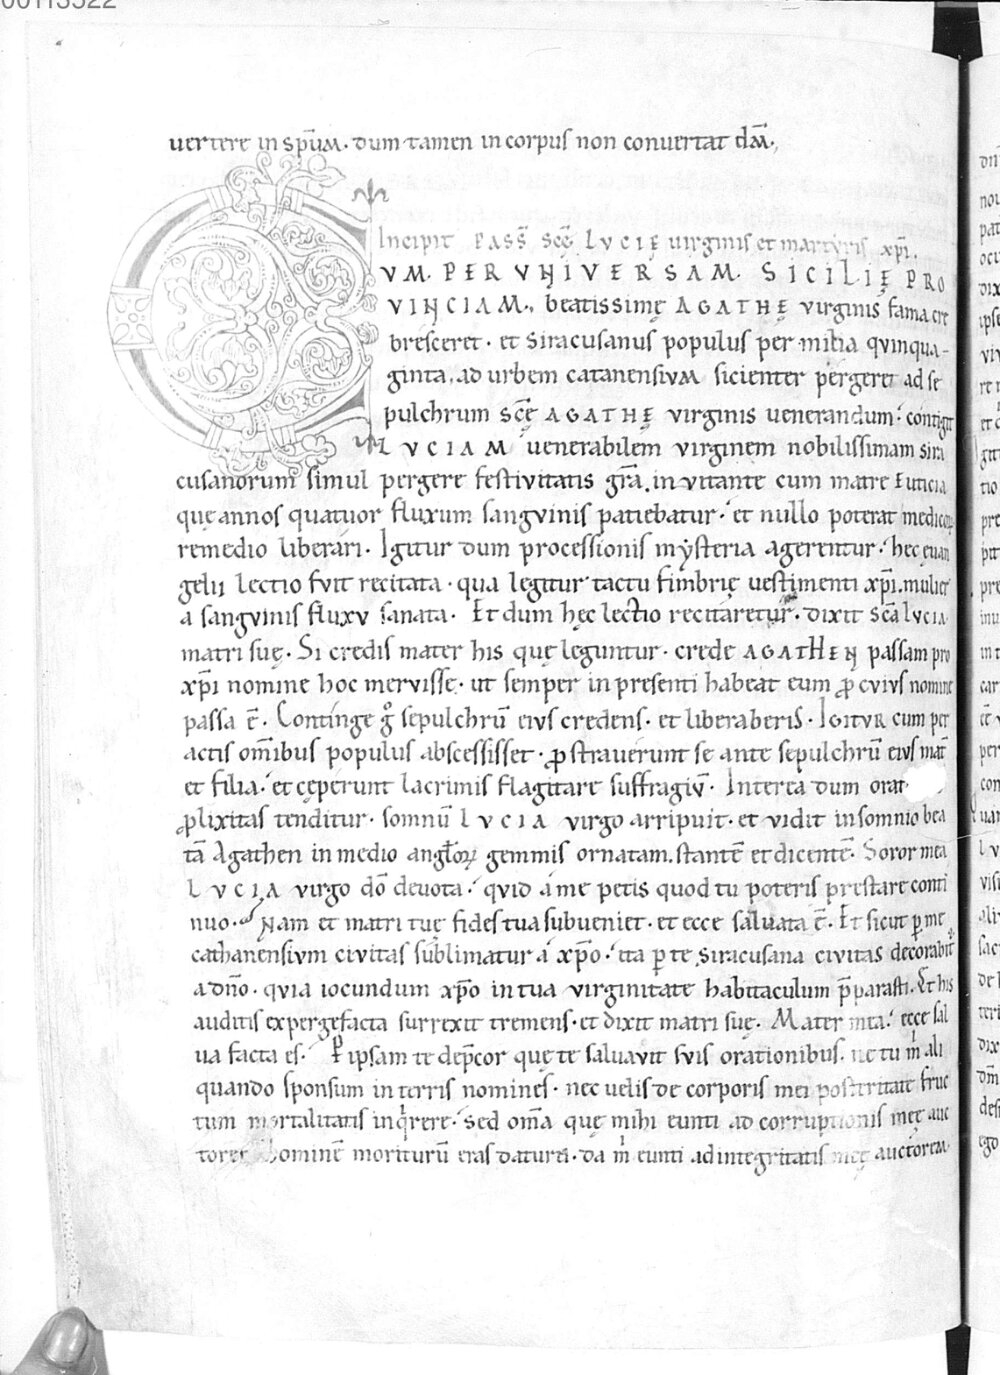 00113522
uertere in sp̄um. dum tamen in corpus non conuertat dm̄.,
Incipit PASS̄ SC̄Ę LVCIĘ uirginis et martyris xp̄i.
VM. PER VNIVERSAM. SICILIĘ PRO
VINCIAM., beatissimę AGATHĘ virginis fama cre
bresceret. et siracusanus populus per milia qvinqua-
ginta, ad urbem catanensivm sicienter pergeret ad se
pulchrum sc̄ę AGATHĘ virginis uenerandum. contigit
LVCIAM uenerabilem virginem nobilissimam sira
cusanorum simul pergere festivitatis gr̄a. invitante cum matre Euticia
quę annos quatuor fluxum sangvinis patiebatur. et nullo poterat medicoꝝ
remedio liberari. Igitur dum processionis mẏsteria agerentur. hec euan
gelii lectio fvit recitata. qua legitur tactu fimbrię uestimenti xp̄i. mulier
a sangvinis fluxv sanata. Et dum hęc lectio recitaretur. dixit sc̄a lvcia
matri suę. Si credis mater his quę leguntur. crede AGATHEN passam pro
xp̄i nomine hoc mervisse. ut semper in presenti habeat eum ꝓ cvivs nomine
passa ē. Continge g̊ sepulchrū eivs credens. et liberaberis. IGITVR cum per
actis om̄ibus populus abscessisset. ꝓstrauerunt se ante sepulchrū eivs mat̄
et filia. et cęperunt lacrimis flagitare suffragiv̄. Interea dum orat
ꝓlixitas tenditur. somnū LVCIA virgo arripuit. et vidit in somnio bea
tā Agathen in medio angl̄oꝝ gemmis ornatam. stantē et dicentē. Soror mea
LVCIA virgo dō deuota. qvid á me petis quod tu poteris prestare conti
nuo. Nam et matri tuę fides tua subueniet. et ecce saluata ē. Et sicut ꝑ me
cathanensivm civitas sublimatur á xp̄o. ita ꝑ te siracusana civitas decorabit̄
a dn̄o. qvia iocundum xp̄o in tua virginitate habitaculum p̄parasti. Et his
auditis expergefacta surrexit tremens. et dixit matri suę. Mater mea. ecce sal
ua facta es. P ipsam te dep̄cor quę te saluavit svis orationibus. ne tu m̍ ali
quando sponsum in terris nomines. nec uelis de corporis mei posteritate fruc
tum mortalitatis inqͥrere. sed om̄a quę mihi eunti ad corruptionis meę auc
torē hominē moriturū eras datura. da m̍ eunti ad integritatis meę auctorem.